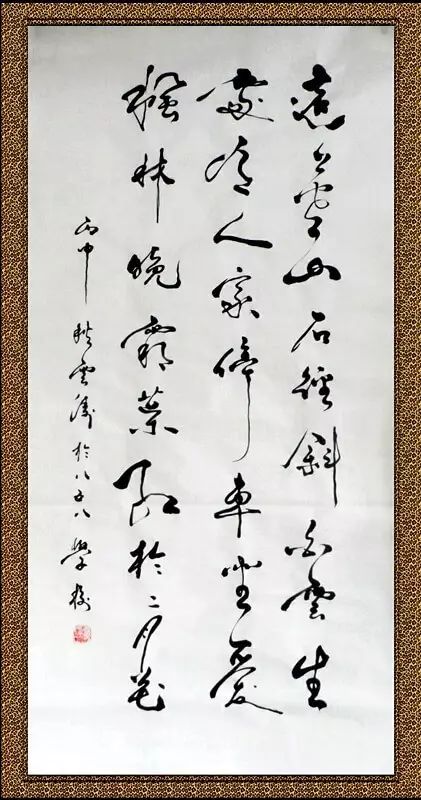 遠上寒山石徑斜白雲生
處有人家停車坐愛
楓林晚霜葉紅於二月花
丙申 雲濤於八五八學校